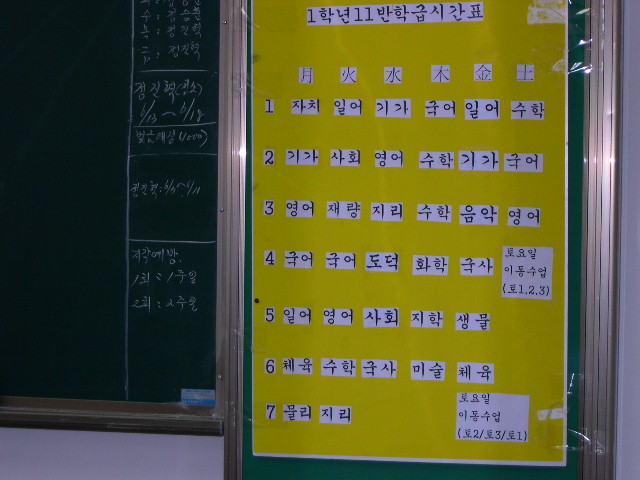 수 : 김승환
목 : 정진혁
금 : 정진혁
정진혁(청소)
6/13 ~ 6/18
벌금예상(1000)
지각예방.
1회 : 1주일
2회 : 2주일
1학년11반학급시간표
月 火 水 木 金 土
1 자치 일어 기가 국어 일어 수학
2 기가 사회 영어 수학 기가 국어
3 영어 재량 지리 수학 음악 영어
4 국어 국어 도덕 화학 국사
토요일
이동수업
(토1,2,3)
5 일어 영어 사회 지학 생물
6 체육 수학 국사 미술 체육
7 물리 지리
토요일
이동수업
(토2/토3/토1)